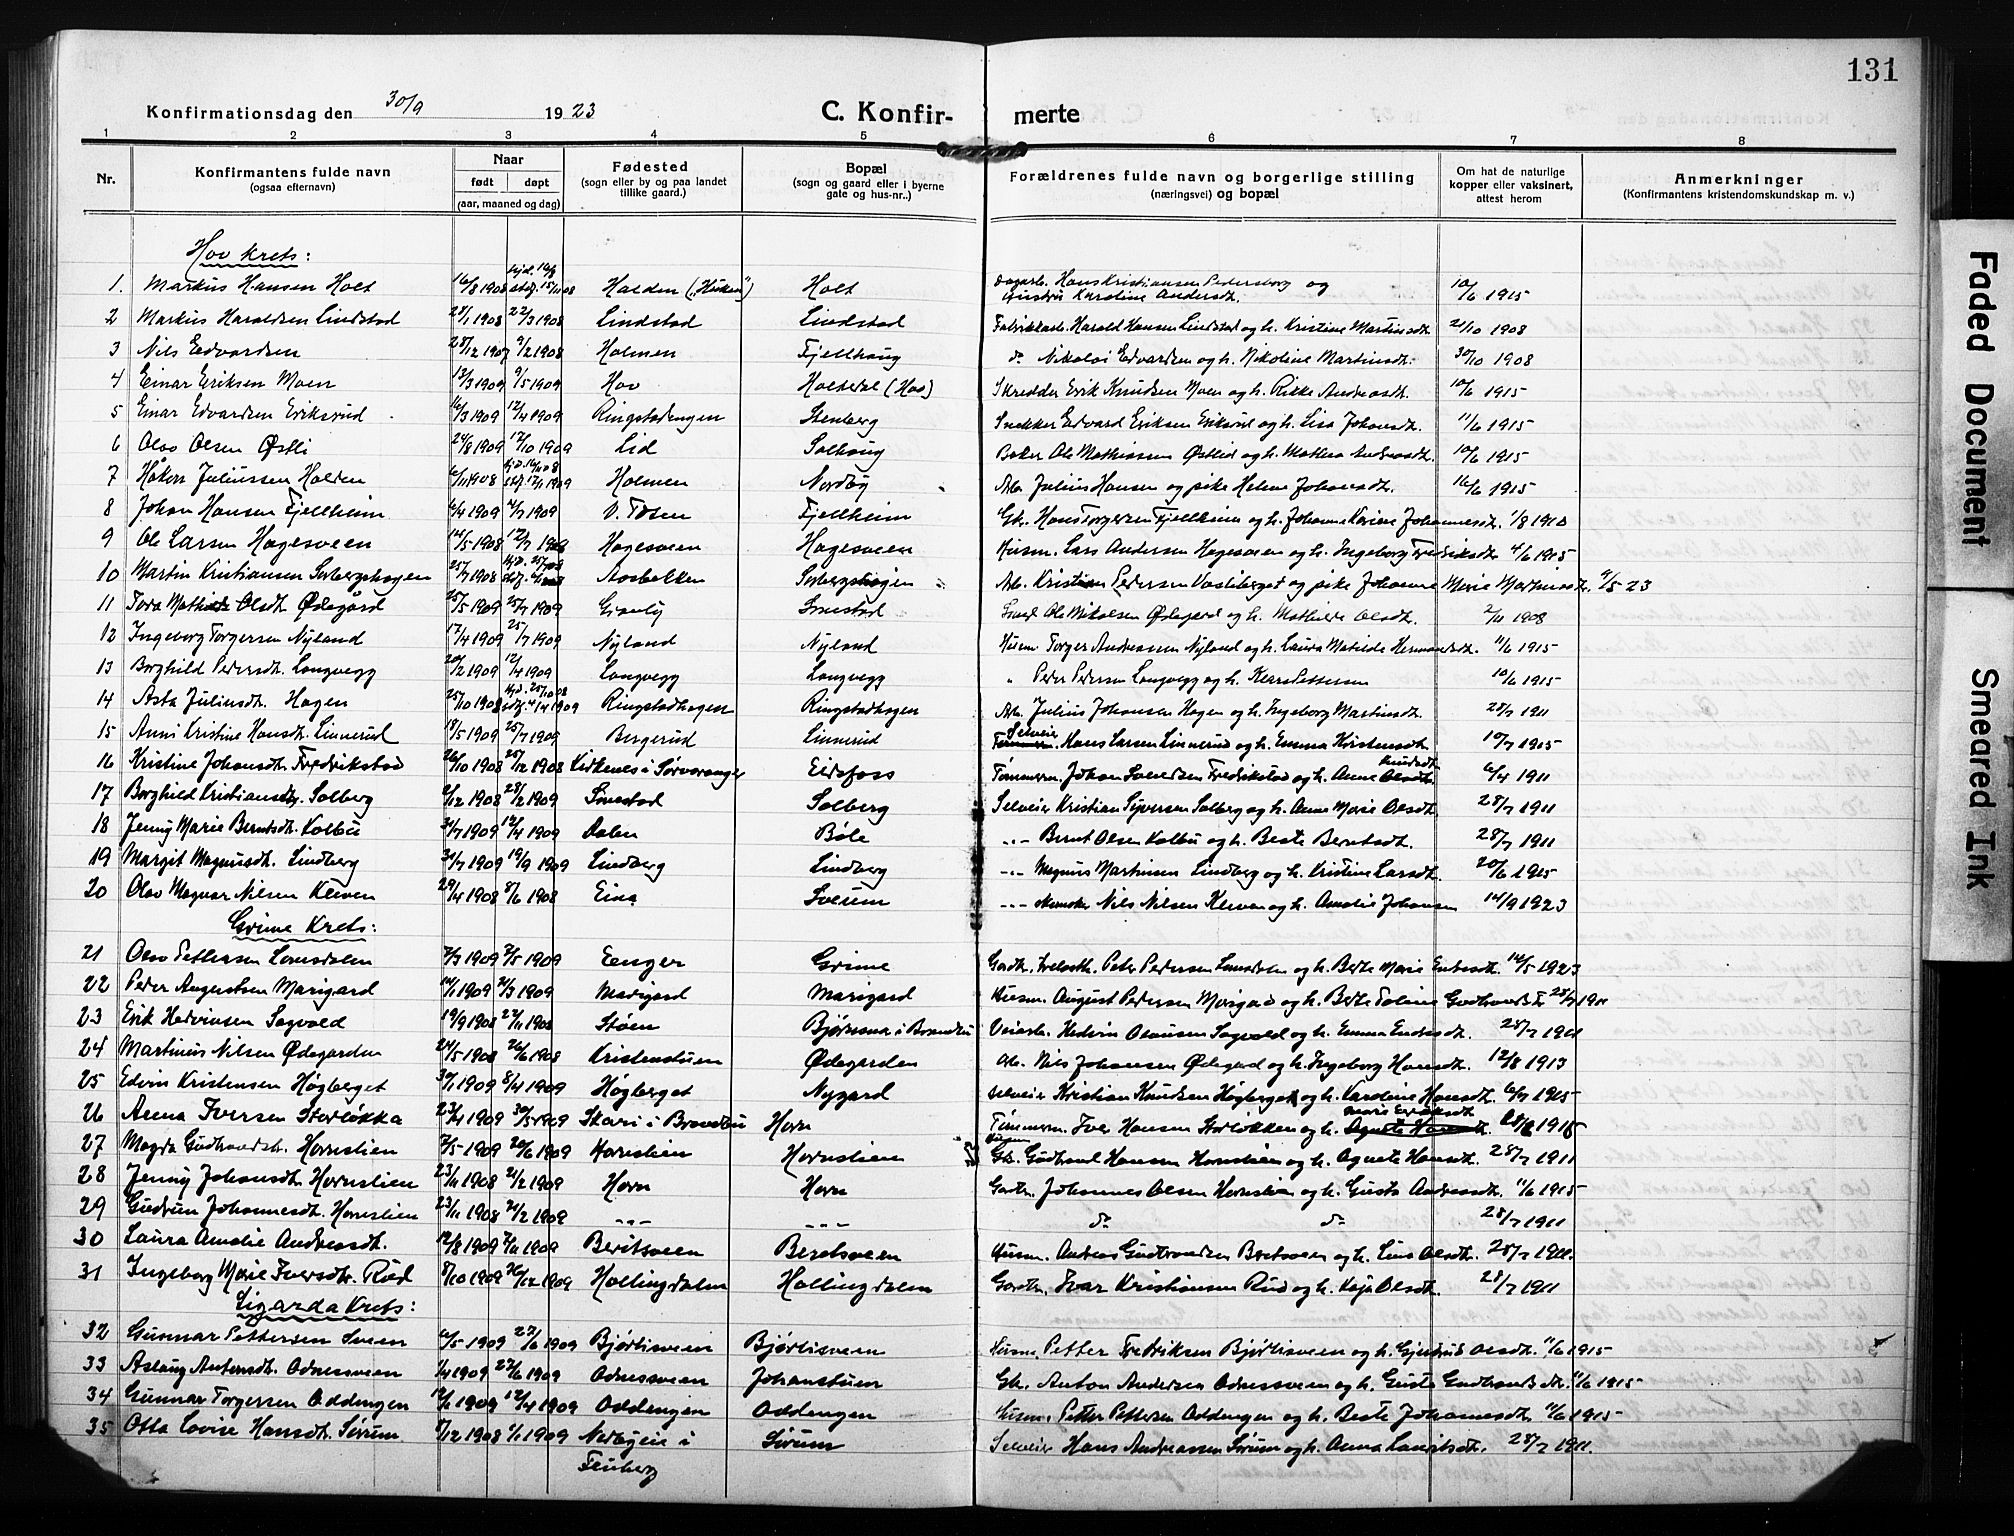 131
Konfirmationsdag den 30/9 1923 C. Konfirmerte
1 2 3 4 5 6 7 8
Nr. Konfirmantens fulde navn (ogsaa efternavn) Naar født døpt (aar, maaned og dag) Fødested (sogn eller by og paa landet tillike gaard.) Bopæl (sogn og gaard eller i byerne gate og hus-nr..) Forældrenes fulde navn og borgerlige stilling (næringsvei) og bopæl Om hat de naturlige kopper eller vaksinert, attest herom Anmerkninger (Konfirmantens kristendomskundskap m. v.)
Hov Krets:
1. Markus Hansen Holt 16/8 1908 Halden Holt Hans Kristiansen Pedersborg og Karoline Andersdt. 10/6 1915
2 Markus Haraldsen Lindstad 28/1 1908 22/3 1908 Lindstad Lindstad Harald Hansen Lindstad og h. Kristine Martinsdt. 21/10 1908
3 Nils Edvardsen 28/12 1907 9/2 1908 Holmen Fjellhaug do Nikolai Edvardsen og h. Nikoline Martinsdt. 30/10 1908
4 Einar Eriksen Moen 13/3 1909 9/5 1909 Hov (Hov) Skredder Erik Knudsen Moen og h. Rikke Andreasdt. 10/6 1915
5 Einar Edvardsen Eriksrud 16/3 1909 12/4 1909 Ringstadengen Stenberg Snekker Edvard Eriksen Eriksrud og h. Lisa Johansdt. 11/6 1915
6 Olav Olsen Østli 24/8 1909 17/10 1909 Lid Solhaug Baker Ole Mathiassen Østlid og h. Mathea Andreasdt. 10/6 1915
7 Håkon Juliussen Halden 6/11 1908 1909 Holmen Nordby Arb. Julius Hansen og pike Helene Johansdt. 16/6 1915
8 Johan Hansen Fjellheim 1909 1909 Fjellheim Gbr. Hans Torgersen Fjellheim og h. Johanne Karine Johannesdt.
9 Ole Larsen Hagesveen 14/5 1908 12/7 Hagesveen Hagesveen Husm. Lars Andersen Hagesveen og h. Ingeborg Fredriksdt. 4/6 1915
10 Martin Kristiansen 25/7 1908 Aasbakken Arb. Kristian Pedersen og pike Johanne Marie 9/5 23
11 Tora Olsdt. Ødegård 25/5 1909 25/7 1909 Granly Smestad Ole Nikolsen Ødegård og h. Mathilde Olsdt. 2/11 1908
12 Ingeborg Torgersen Nyland 17/4 1909 25/7 1909 Nyland Nyland Husm. Torger Andreassen Nyland og h. Laura Matilde Hermansdt. 11/6 1915
13 Borghild Pedersdt. Langvegg 20/2 1909 12/4 1909 Langvegg Langvegg " Peder Pedersen Langvegg og h. 10/6 1915
14 Asta Juliusdt. Hagen 25/10 1908 4/4 1909 Ringstadhagen Ringstadhagen Arb. Julius Johansen Hagen og h. Ingeborg Martinsdt. 28/7 1911
15 Anni Kristine Hansdt. Linnerud 18/5 1909 25/7 1909 Bergerud Linnerud Selveier Hans Larsen Linnerud og h. Emma Kristensdt. 1915
16 Kristine Johansdt. Fredrikstad 26/10 1908 25/12 1908 Kirkenes i Sørvaranger Eidsfoss Tømmerm. Johan Fredrikstad og h. Anne Knudsdt. 6/4 1911
17 Borghild Kristiansdt. Solberg 2/12 1908 28/2 1909 Smestad Solberg Selveier Kristian Syversen Solberg og h. Anne Marie Olsdt. 28/7 1911
18 Jenny Marie Berntsdt. Kolbu 31/7 1909 12/4 1909 Dalen Bøle -"- Bernt Olsen Kolbu og h. Beate Berntsdt. 28/7 1911
19 Margit Magnusdt. Lindberg 31/7 1909 19/9 1909 Lindberg Lindberg -"- Magnus Martinsen Lindberg og h. Kristine Larsdt. 20/6 1915
20 Olav Magnar Nilsen Kleven 29/4 1908 8/6 1908 Eina Sveum -"- Nils Nilsen Kleven og h. Amalie Johansen 14/9 1923
Grime Krets:
21 Olav Pettersen Lomsdalen 7/3 1909 2/5 1909 Eenger Grime Peter Pedersen Lomsdalen og h. Berte Marie 14/5 1923
22 Peder Augustsen Marigard 14/1 1909 21/3 1909 Marigard Marigard Husm. August Pedersen Marigard og h. Berte Gudbrandsdtr. 28/7 1911
23 Erik Hedvinsen Sagvold 19/9 1908 22/11 1908 Støen i Brandbu Veiarb. Hedvin Olausen Sagvold og h. Emma 28/7 1911
24 Martinus Nilsen Ødegarden 24/5 1908 26/6 1908 Kristenstuen Ødegarden Arb. Nils Johansen Ødegard og h. Ingeborg Hansdt. 12/8 1913
25 Edvin Kristensen Høgberget 30/1 1909 8/4 1909 Høgberget Nygard Selveier Kristian Knudsen Høgberget og h. Karoline Hansdt. 6/7 1915
26 Anna Iversen Storløkka 23/4 1909 30/5 1909 i Brandbu Horn Tømmerm. Iver Hansen Storløkken og h. Marie Eriksdt 1915
27 Magda Gudbrandsdt. Hornslien 7/5 1909 20/6 1909 Hornslien Hornslien Gbr. Gudbrand Hansen Hornslien og h. Agnete Hansdt. 28/7 1911
28 Jenny Johansdt. Hornslien 23/11 1908 21/2 1909 Horn Horn Gardbr. Johannes Olsen Hornslien og h. Gusta Andreasdt. 11/6 1915
29 Gudrun Johannesdt. Hornslien 23/11 1908 21/2 1909 -"- -"- do do 28/7 1911
30 Laura Amalie Andreasdt. 19/8 1909 7/11 1909 Beritsveen Beretsveen Husm. Andreas Gudbrandsen Beretsveen og h. Lina Olsdt. 28/7 1911
31 Ingeborg Marie Iversdt. Rud 8/10 1909 26/12 1909 Hollingdalen Hollingdalen Gardbr. Ivar Kristiansen Rud og h. Kaja Olsdt. 28/7 1911
Ligarda Krets:
32 Gunnar Pettersen Sveen 6/5 1909 27/6 1909 Bjørlisveen Bjørlisveen Husm. Petter Fredriksen Bjørlisveen og h. Gjertrud Olsdt. 11/6 1915
33 Aslaug Antonsdt. Odnessveen 1/4 1909 27/6 1909 Odnessveen Johanstuen Gbr. Anton Andersen Odnessveen og h. Gusta Gudbrandsdt. 11/6 1915
34 Gunnar Torgersen Oddengen 12/1 1909 12/4 1909 Oddengen Oddengen Husm. Petter Pettersen Oddengen og h. Beate Johannesdt. 11/6 1915
35 Otta Lovise Hansdt. Sørum 8/12 1908 6/1 1909 i Fluberg Sørum Selveier Hans Andreassen Sørum og h. Anna Lauritsdt. 28/7 1911.
Faded Document
Smeared Ink